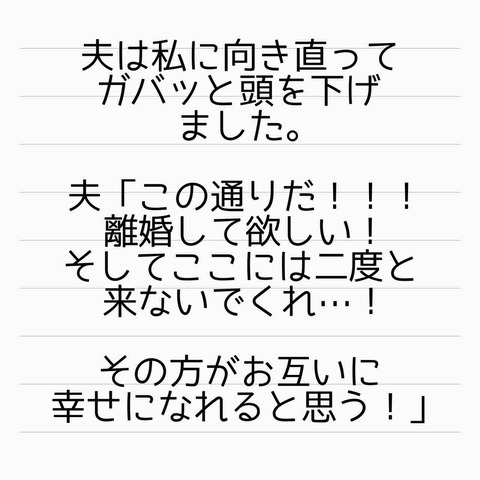 夫は私に向き直って
ガバッと頭を下げ
ました。
夫「この通りだ！！！
離婚して欲しい！
そしてここには二度と
来ないでくれ…！
その方がお互いに
幸せになれると思う！」